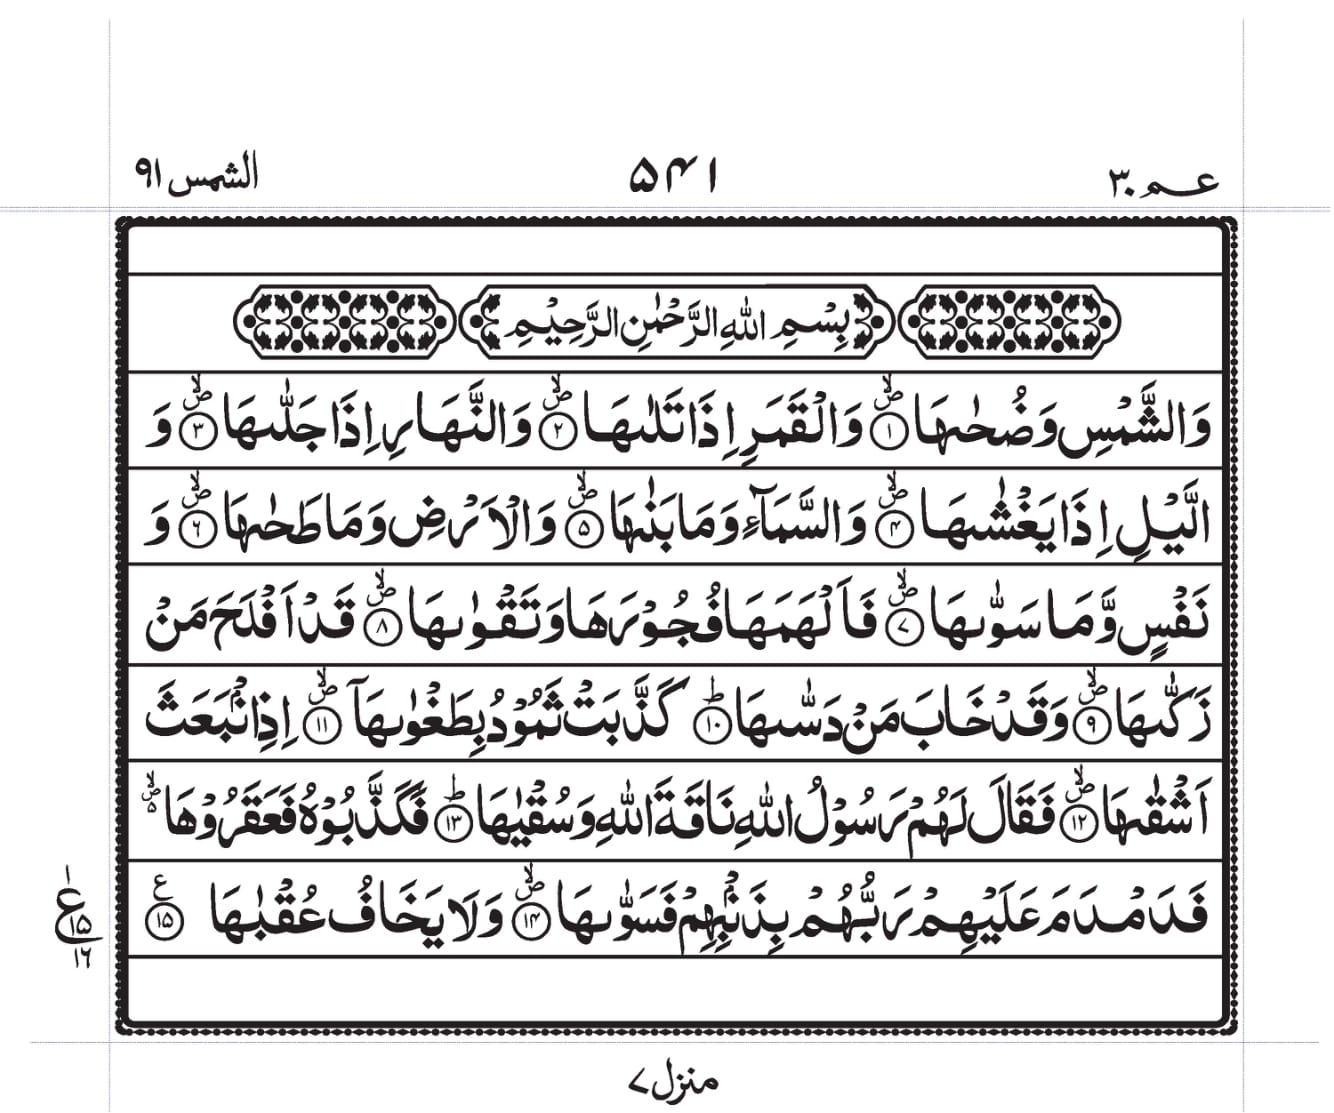 عم ٣٠
۵۴۱
الشمس ٩١
بِسْمِ اللهِ الرَّحْمٰنِ الرَّحِيْمِ
وَالشَّمْسِ وَضُحٰىهَا ۪ۙۙ ﴿۱﴾ وَالْقَمَرِ اِذَا تَلٰىهَا ۪ۙۙ ﴿۲﴾ وَالنَّهَارِ اِذَا جَلّٰىهَا ۪ۙۙ ﴿۳﴾ وَ
الَّيْلِ اِذَا يَغْشٰىهَا ۪ۙۙ ﴿۴﴾ وَالسَّمَآءِ وَمَا بَنٰىهَا ۪ۙۙ ﴿۵﴾ وَالْاَرْضِ وَمَا طَحٰىهَا ۪ۙۙ ﴿۶﴾ وَ
نَفْسٍ وَّمَا سَوّٰىهَا ۪ۙۙ ﴿۷﴾ فَاَلْهَمَهَا فُجُوْرَهَا وَتَقْوٰىهَا ۪ۙۙ ﴿۸﴾ قَدْ اَفْلَحَ مَنْ
زَكّٰىهَا ۪ۙۙ ﴿۹﴾ وَقَدْ خَابَ مَنْ دَسّٰىهَا ؕ ﴿۱۰﴾ كَذَّبَتْ ثَمُوْدُ بِطَغْوٰىهَآ ۪ۙۙ ﴿۱۱﴾ اِذِ انْۢبَعَثَ
اَشْقٰىهَا ۪ۙۙ ﴿۱۲﴾ فَقَالَ لَهُمْ رَسُوْلُ اللهِ نَاقَةَ اللهِ وَسُقْيٰهَا ؕ ﴿۱۳﴾ فَكَذَّبُوْهُ فَعَقَرُوْهَا ۪ۙۙ ۵
فَدَمْدَمَ عَلَيْهِمْ رَبُّهُمْ بِذَنْۢبِهِمْ فَسَوّٰىهَا ۪ۙۙ ﴿۱۴﴾ وَلَا يَخَافُ عُقْبٰهَا ﴿۱۵﴾ ع
١
ع
۱۵
۱۶
منزل ۷